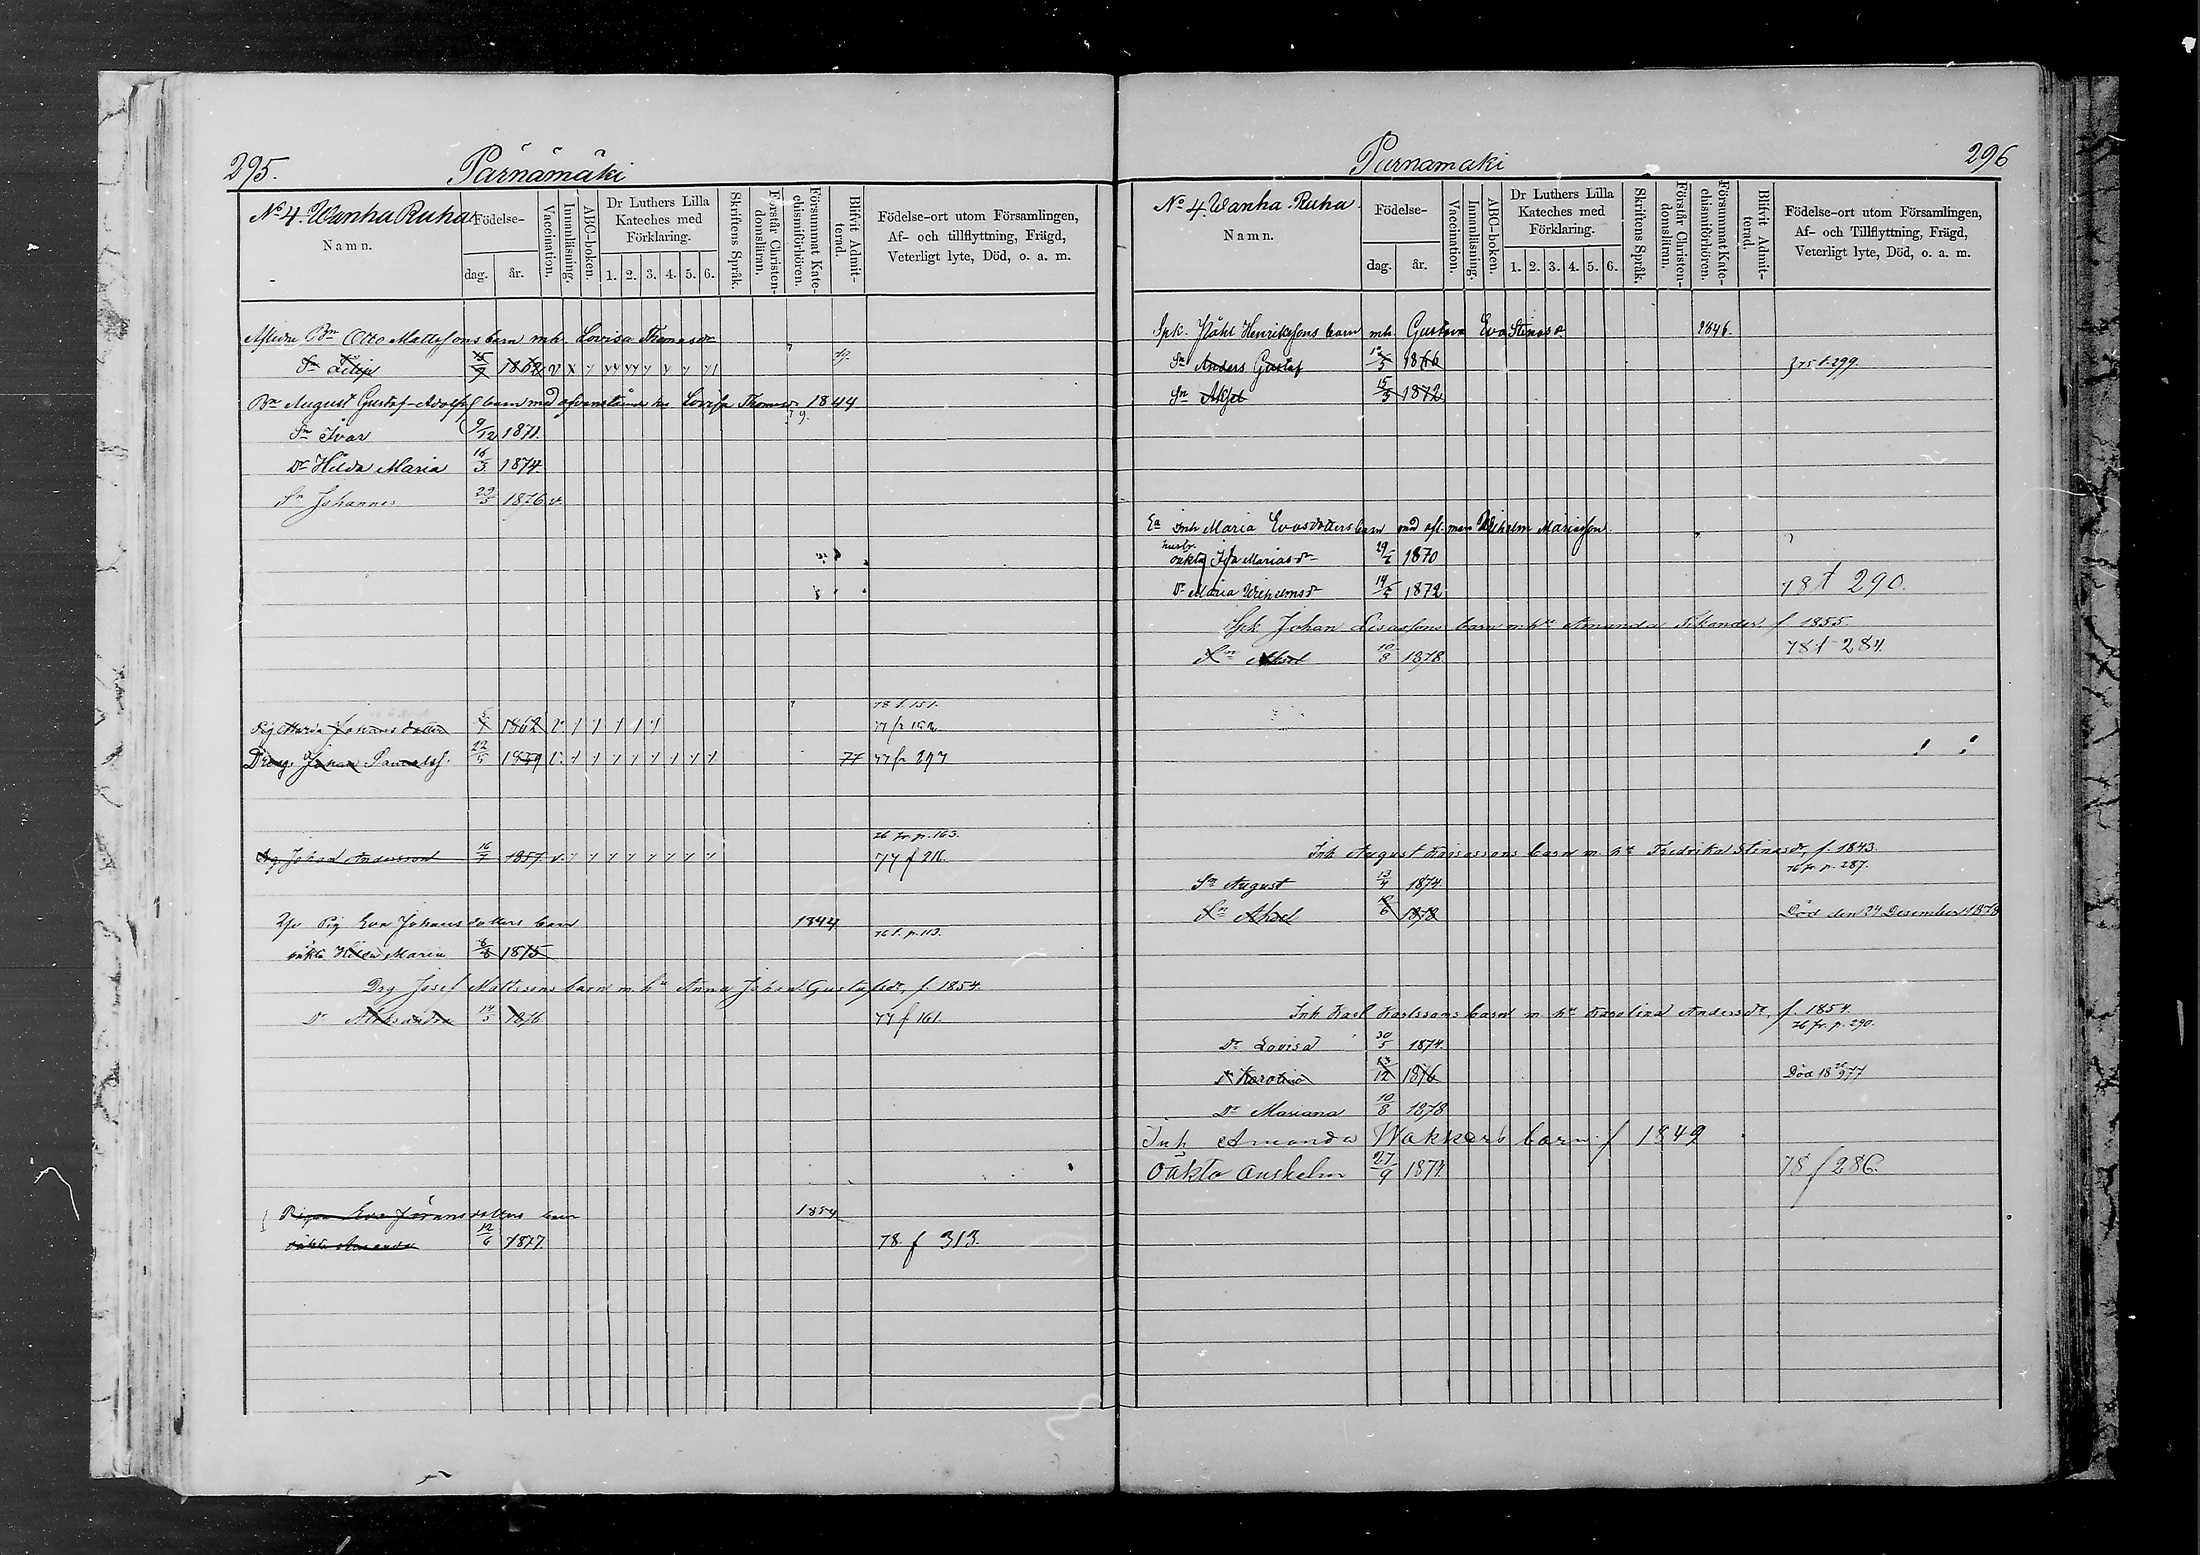 295. Pärnämäki
No 4. Wanha Ruha
Namn.
Födelse-
dag.
år.
Vaccination.
Innanläsning.
ABC-boken.
Dr Luthers Lilla
Kateches med
Förklaring.
1. 2. 3. 4. 5. 6.
Skriftens Språk.
Förstår Christen-
domsläran.
Försummat Kate-
chismiförhören.
Blifvit Admit-
terad.
Födelse-ort utom Församlingen,
Af- och tillflyttning, Frägd,
Veterligt lyte, Död, o. a. m.
Aflidne Bn Otto Mattssons barn mh. Lovisa Thomasdr
Sn Filip 1862
Bn August Gustaf Adolfs barn med Lovisa 1844
Sn Ivar 9/12 1871.
Dr Hilda Maria 16/3 1874.
Sn Johannes 29/5 1876 v.
78 t. 151.
Pig Maria Johansdotter 1862 v 77 fr 152
Dreng Johan Samuelsf. 22/5 1859 v. 77 77 fr 297
76 fr. p. 163.
Drg Johan Andersson 16/7 1857 v. 77 f 211.
Pig Eva Johansdotters barn 1844
76 t. p. 113.
oäkta Hilda Maria 1875
Drg Josef Mattssons barn m. hu Anna Johan Gustafsdr, f. 1854.
Dr Aleksandra 14/5 1876 77 f 161.
Pigan Eva Jöransdotters barn 1854
oäkta Amanda 12/6 1877. 78. f 313.
Pärnamäki 296
No 4 Wanha Ruha.
Namn.
Födelse-
dag.
år.
Vaccination.
Innanläsning.
ABC-boken.
Dr Luthers Lilla
Kateches med
Förklaring.
1. 2. 3. 4. 5. 6.
Skriftens Språk.
Förstår Christen-
domsläran.
Försummat Kate-
chismiförhören.
Blifvit Admit-
terad.
Födelse-ort utom Församlingen,
Af- och Tillflyttning, Frägd,
Veterligt lyte, Död, o. a. m.
Spk. Påhl Henrikssons barn mh. Gustava Eva Stinas dr 1846.
Sn Anders Gustaf 1866 75 t. 299.
Sn Aksel 15/3 1872
Ea inh Maria Evasdotters barn med afl. man Wilhelm Mariasson.
oäkta Ida Mariasdr 1870
Dr Maria Wilhelmsdr 1872 78 t 290.
Spk Johan Lisassons barn m hu Amanda f 1855.
Sn Aksel 10/8 1878 78 t 284.
Inh August barn m. hu Fredrika Stinasdr, f. 1843.
76 fr. p. 287.
Sn August 13/4 1874.
Sn Aksel 1878 Död den 24 Desember 1878
Inh Karl Karlssons barn m. hu Karolina Andersdr, f. 1854.
76 fr. p. 290.
Dr Lovisa 30/5 1874.
Dr Karolina 23/12 1876 Död
Dr Mariana 10/8 1878
Inh Amanda Wakkers barn f 1849
Oäkta Anshelm 27/9 1874. 78 f 286.